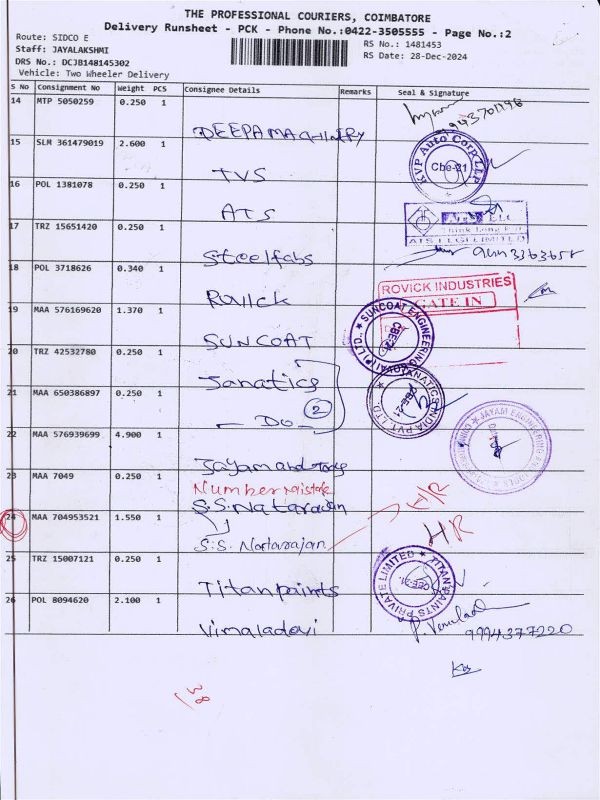 THE PROFESSIONAL COURIERS, COIMBATORE
Delivery Runsheet - PCK - Phone No.:0422-3505555 - Page No.:2
Route: SIDCO E
Staff: JAYALAKSHMI
DRS No.: DCJB148145302
Vehicle: Two Wheeler Delivery
RS No.: 1481453
RS Date: 28-Dec-2024
S No Consignment No Weight PCS Consignee Details Remarks Seal & Signature
14 MTP 5050259 0.250 1
15 SLM 361479019 2.600 1
TVS
KVP Auto Corp LLP
Cbe-21
16 POL 1381078 0.250 1
ATS
Think Long
ATS ELGI LIMITED
17 TRZ 15651420 0.250 1
Steelfabs
18 POL 3718626 0.340 1
Rovick
ROVICK INDUSTRIES
GATE IN
19 MAA 576169620 1.370 1
SUNCOAT
SUNCOAT ENGINEERING (P) LTD.
20 TRZ 42532780 0.250 1
Janatics
2
21 MAA 650386897 0.250 1
Do
JANATICS INDIA PVT. LTD
22 MAA 576939699 4.900 1
JAYAM ENGINEERING
23 MAA 7049 0.250 1
Number mistake
S.S. Natarajan
H/R
24 MAA 704953521 1.550 1
S.S. Natarajan
HR
25 TRZ 15007121 0.250 1
Titan paints
TITAN PAINTS PRIVATE LIMITED
26 POL 8094620 2.100 1
Vimaladevi
9994377220